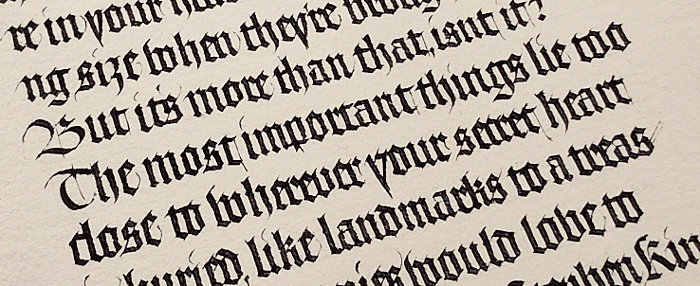 re in your
ng size when they're
But it's more than that, isn't it?
The most important things lie too
close to wherever your secret heart
buried, like landmarks to a treas
would love to
Stephen Kin